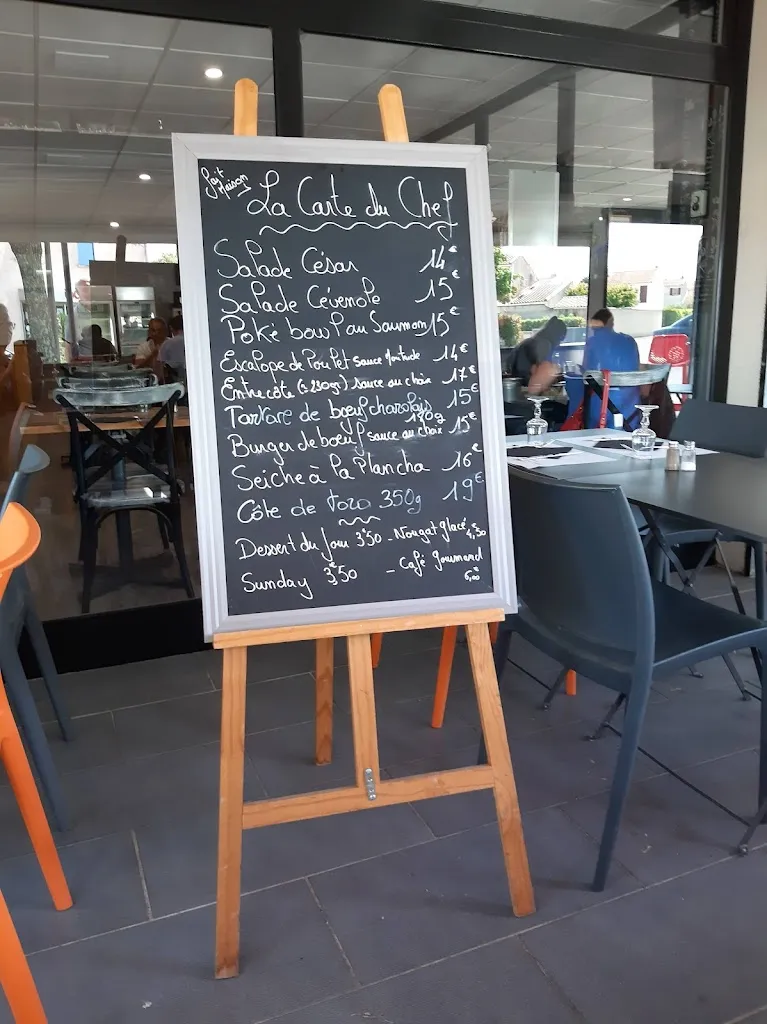 fait
Maison
La Carte du Chef
Salade César 14€
Salade Cévenole 15€
Poké bowl au Saumon 15€
Escalope de Poulet sauce 14€
Entrecôte (± 230gr) sauce au choix 17€
Tartare de bœuf charolais 15€
180g
Burger de bœuf sauce au choix 15€
Seiche à la Plancha 16€
Côte de Toro 350g 19€
Dessert du Jour 3€50 - Nougat glacé 4,€50
Sunday 3€50 - Café gourmand
6,€00